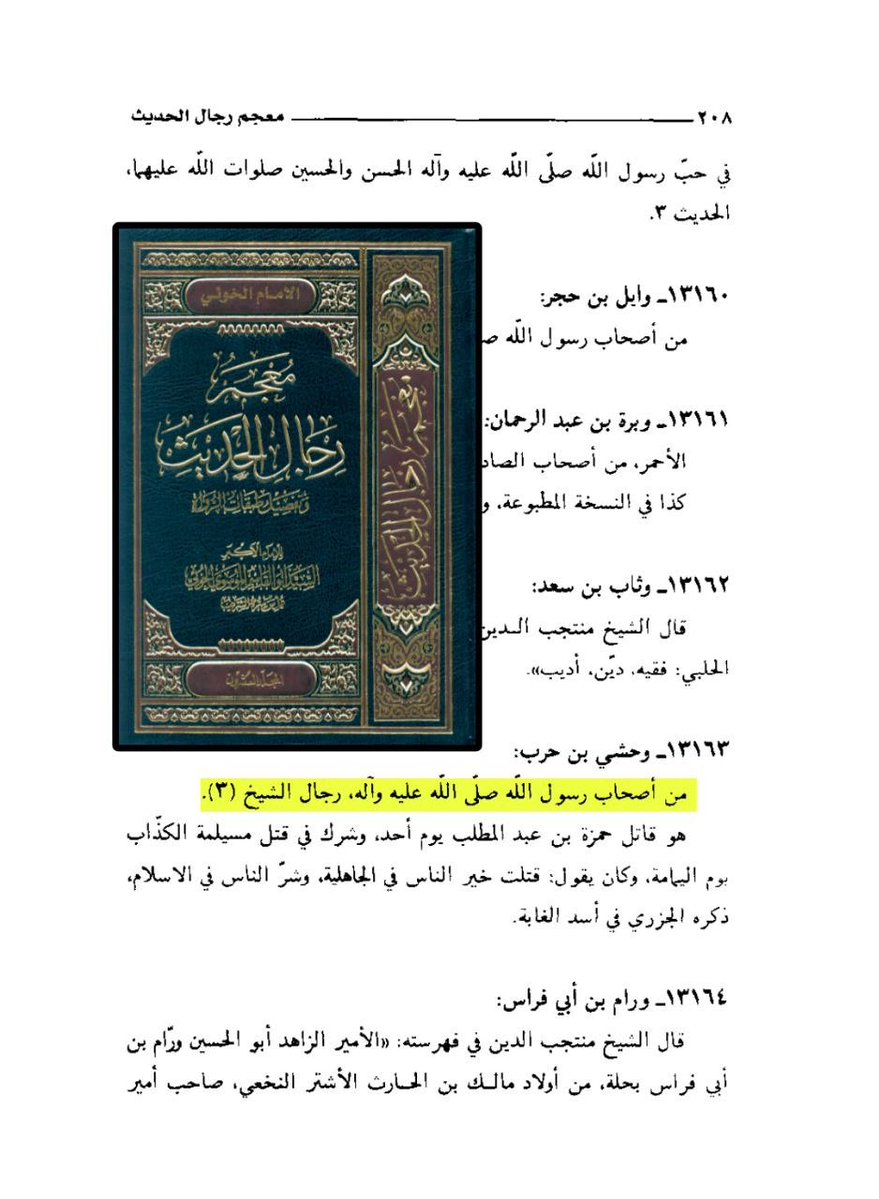 ٢٠٨ معجم رجال الحديث
في حبّ رسول اللّه صلّى اللّه عليه وآله الحسن والحسين صلوات اللّه عليهما،
الحديث ٣.
١٣١٦٠ـ وايل بن حجر:
من أصحاب رسول اللّه صـ
١٣١٦١ـ وبرة بن عبد الرحمان:
الأحمر، من أصحاب الصاد
كذا في النسخة المطبوعة، و
١٣١٦٢ـ وثاب بن سعد:
قال الشيخ منتجب الـدين
الحلبي: فقيه، ديّن، أديب».
١٣١٦٣ـ وحشي بن حرب:
من أصحاب رسول اللّه صلّى اللّه عليه وآله، رجال الشيخ (٣).
هو قاتل حمزة بن عبد المطلب يوم أحد، وشرك في قتل مسيلمة الكذّاب
يوم اليمامة، وكان يقول: قتلت خير الناس في الجاهلية، وشرّ الناس في الاسلام،
ذكره الجزري في أسد الغابة.
١٣١٦٤ـ ورام بن أبي فراس:
قال الشيخ منتجب الدين في فهرسته: «الأمير الزاهد أبو الحسين ورّام بن
أبي فراس بحلة، من أولاد مالـك بن الحـارث الأشتر النخعي، صاحب أمير
الإمام الخوئي
مُعْجَمُ
رِجَالِ الحَدِيثِ
وتفصيل طبقات الرواة
للإمام الأكبر
السيد أبو القاسم الموسوي الخوئي
المجلد العشرون
معجم رجال الحديث